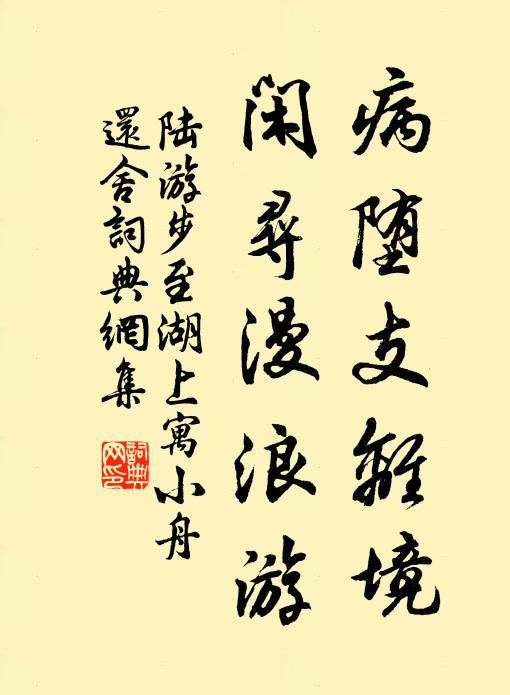 病堕支離境
闲尋漫浪游
陆游步至湖上寓小舟
還舍詞典網集
詞典網印